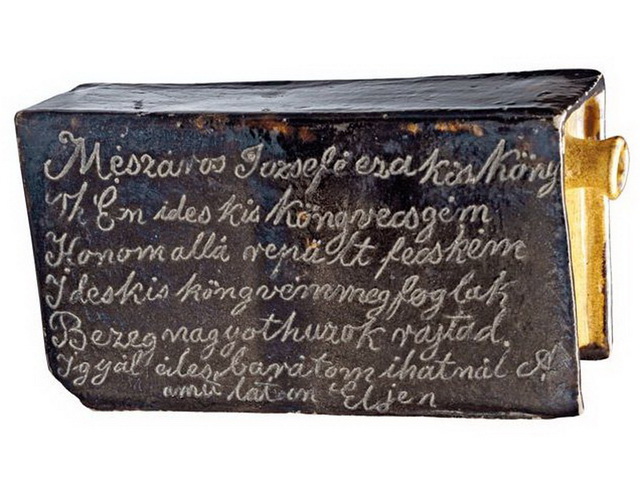 Mészáros Jozsefé eza kis Köny
Vh En ides kis Köngvecsgém
Honom allá repá lt fecském
Ides kis köngvém meg fog lak
Bezeg nagyot huzok rajtad.
Igyál édes barátom ihatnál A
amíl láton Eljen